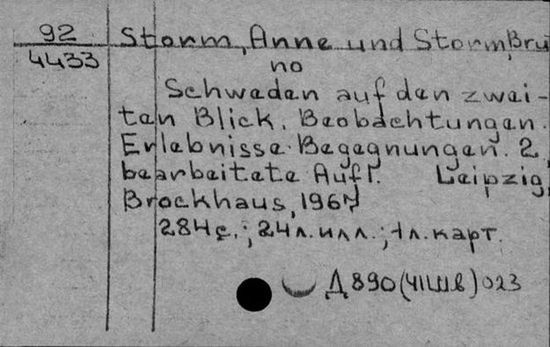 92 Storm, Anne und Storm, Bru
4433 no
Schweden auf den zwei-
ten Blick. Beobachtungen.
Erlebnisse. Begegnungen. 2,
bearbeitete Aufl. Leipzig,
Brockhaus, 1967
284 с.; 24 л. илл.; 1 л. карт.
Д 890(4Шв)023